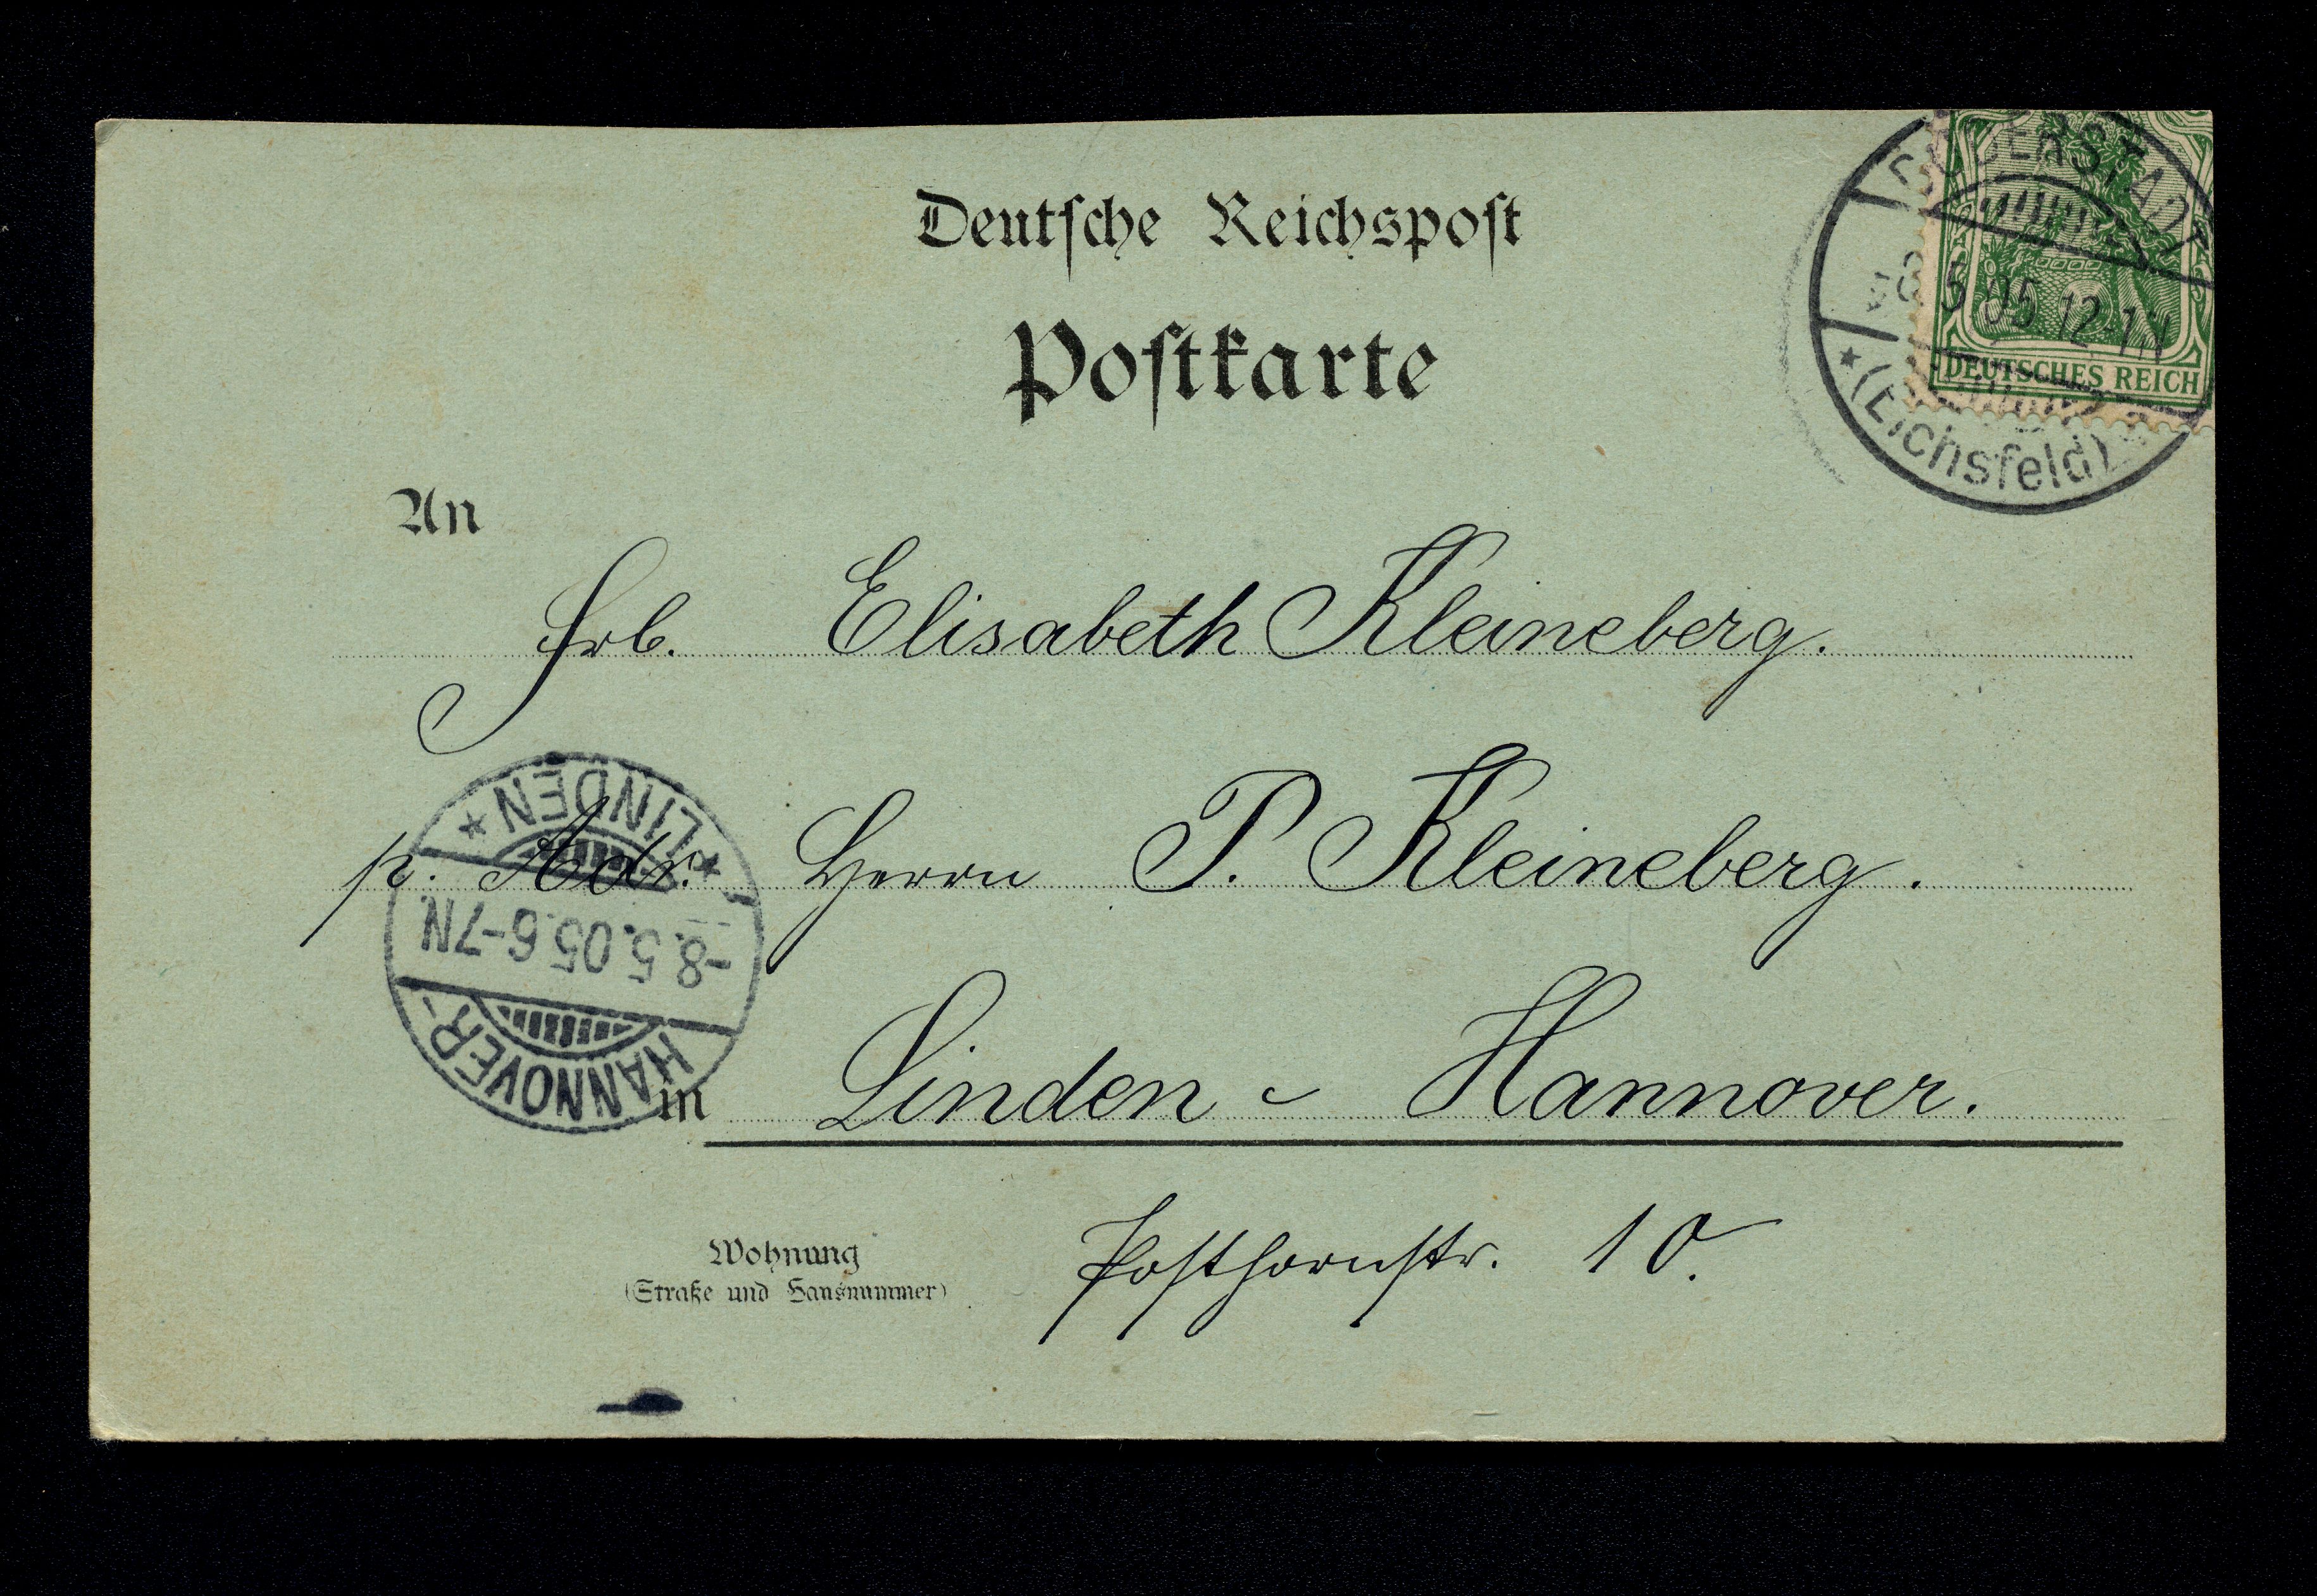 Deutsche Reichspost
Postkarte
DUDERSTADT
8 5 05 12-1N
* (Eichsfeld)
DEUTSCHES REICH
An
Frl. Elisabeth Kleineberg.
p. Adr. Herrn P. Kleineberg.
in Linden - Hannover.
HANNOVER-
-8.5.05.6-7N.
*LINDEN*
Wohnung
(Straße und Hausnummer)
Posthornstr. 10.